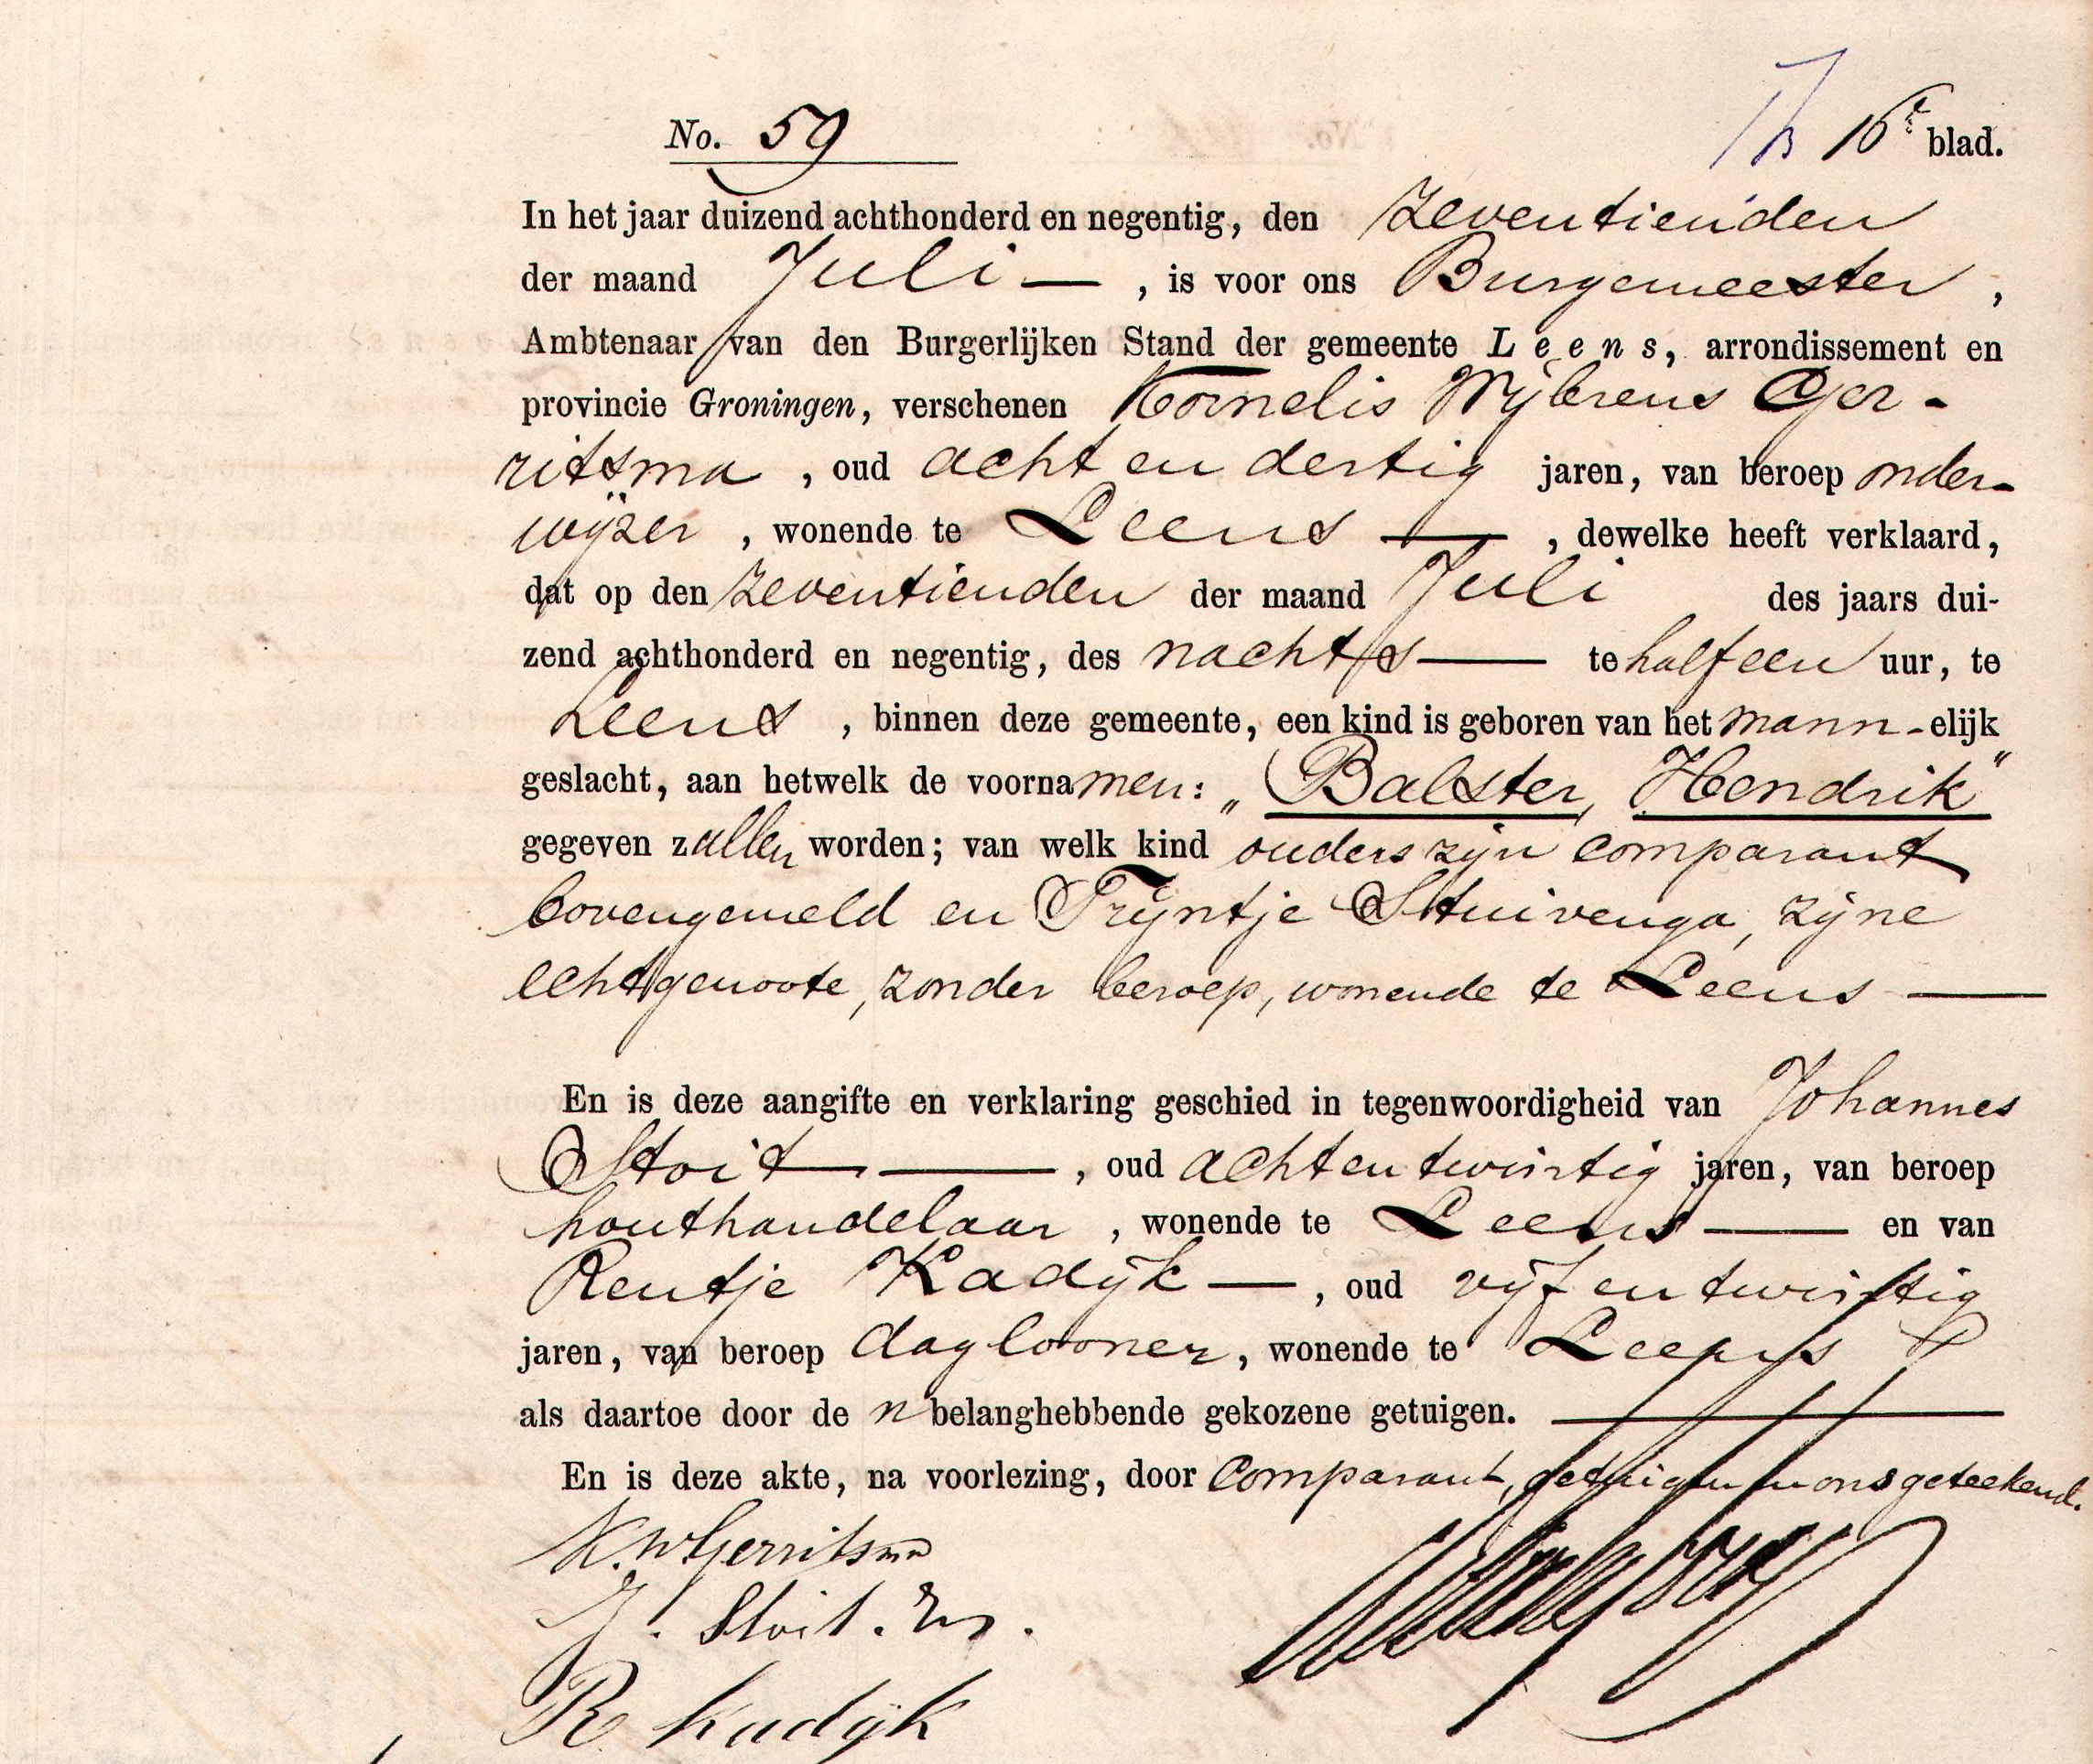 No. 59
16e blad.
In het jaar duizend achthonderd en negentig, den zeventienden
der maand Juli — , is voor ons Burgemeester ,
Ambtenaar van den Burgerlijken Stand der gemeente Leens, arrondissement en
provincie Groningen, verschenen Kornelis Wijbrens Ger-
ritsma , oud acht en dertig jaren, van beroep onder-
wijzer , wonende te Leens — , dewelke heeft verklaard,
dat op den zeventienden der maand Juli des jaars dui-
zend achthonderd en negentig, des nachts — te half een uur, te
Leens , binnen deze gemeente, een kind is geboren van het mann-elijk
geslacht, aan hetwelk de voornamen: „Balster, Hendrik"
gegeven zullen worden; van welk kind ouders zijn comparant
bovengemeld en Trijntje Stuivenga, zijne
echtgenoote, zonder beroep, wonende te Leens —
En is deze aangifte en verklaring geschied in tegenwoordigheid van Johannes
Stoit — , oud achtentwintig jaren, van beroep
houthandelaar , wonende te Leens — en van
Rentje Kadijk — , oud vijfentwintig
jaren, van beroep daglooner, wonende te Leens
als daartoe door de n belanghebbende gekozene getuigen. —
En is deze akte, na voorlezing, door comparant, getuigen en ons geteekend.
K. W Gerritsma
J. Stoit.
R Kadijk